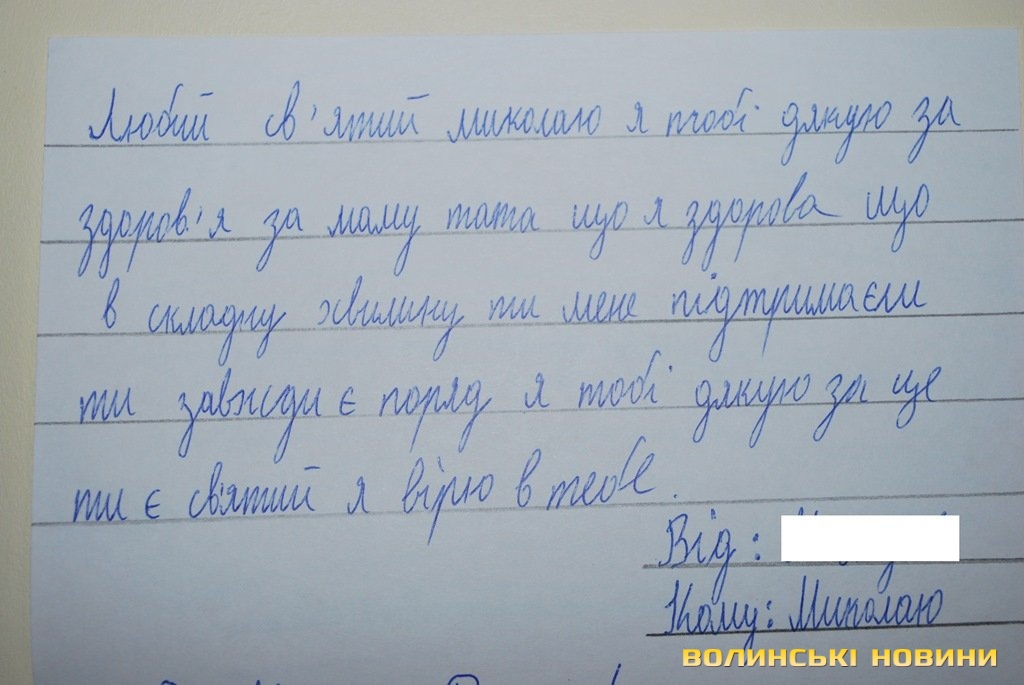 Любий св'ятий миколаю я тобі дякую за
здоров'я за маму тата що я здорова що
в складну хвилину ти мене підтримаєш
ти завжди є поряд я тобі дякую за це
ти є св'ятий я вірю в тебе.
Від:
Кому: Миколаю
ВОЛИНСЬКІ НОВИНИ